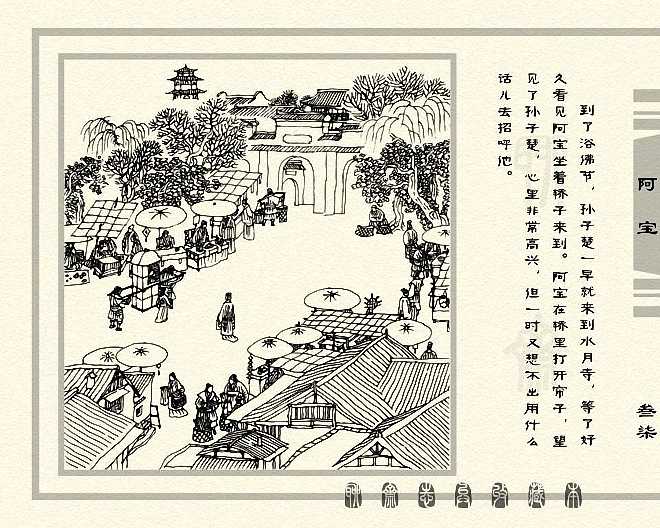 到了浴佛节，孙子楚一早就来到水月寺，等了好
久看见阿宝坐着轿子来到。阿宝在轿里打开帘子，望
见了孙子楚，心里非常高兴，但一时又想不出用什么
话儿去招呼他。
阿宝
叁柒
聊斋志异收藏本